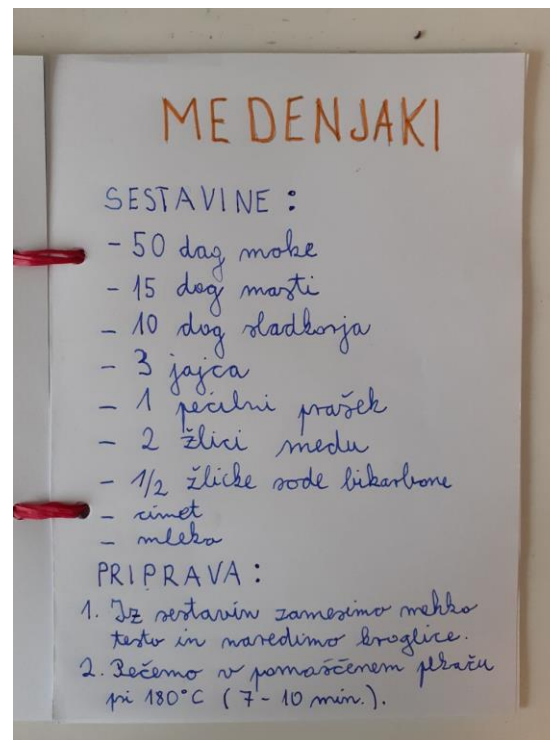 MEDENJAKI
SESTAVINE:
- 50 dag moke
- 15 dag masti
- 10 dag sladkorja
- 3 jajca
- 1 pecilni prašek
- 2 žlici medu
- 1/2 žličke sode bikarbone
- cimet
- mleko
PRIPRAVA:
1. Iz sestavin zamesimo mehko
testo in naredimo kroglice.
2. Pečemo v pomaščenem pekaču
pri 180°C (7-10 min.).